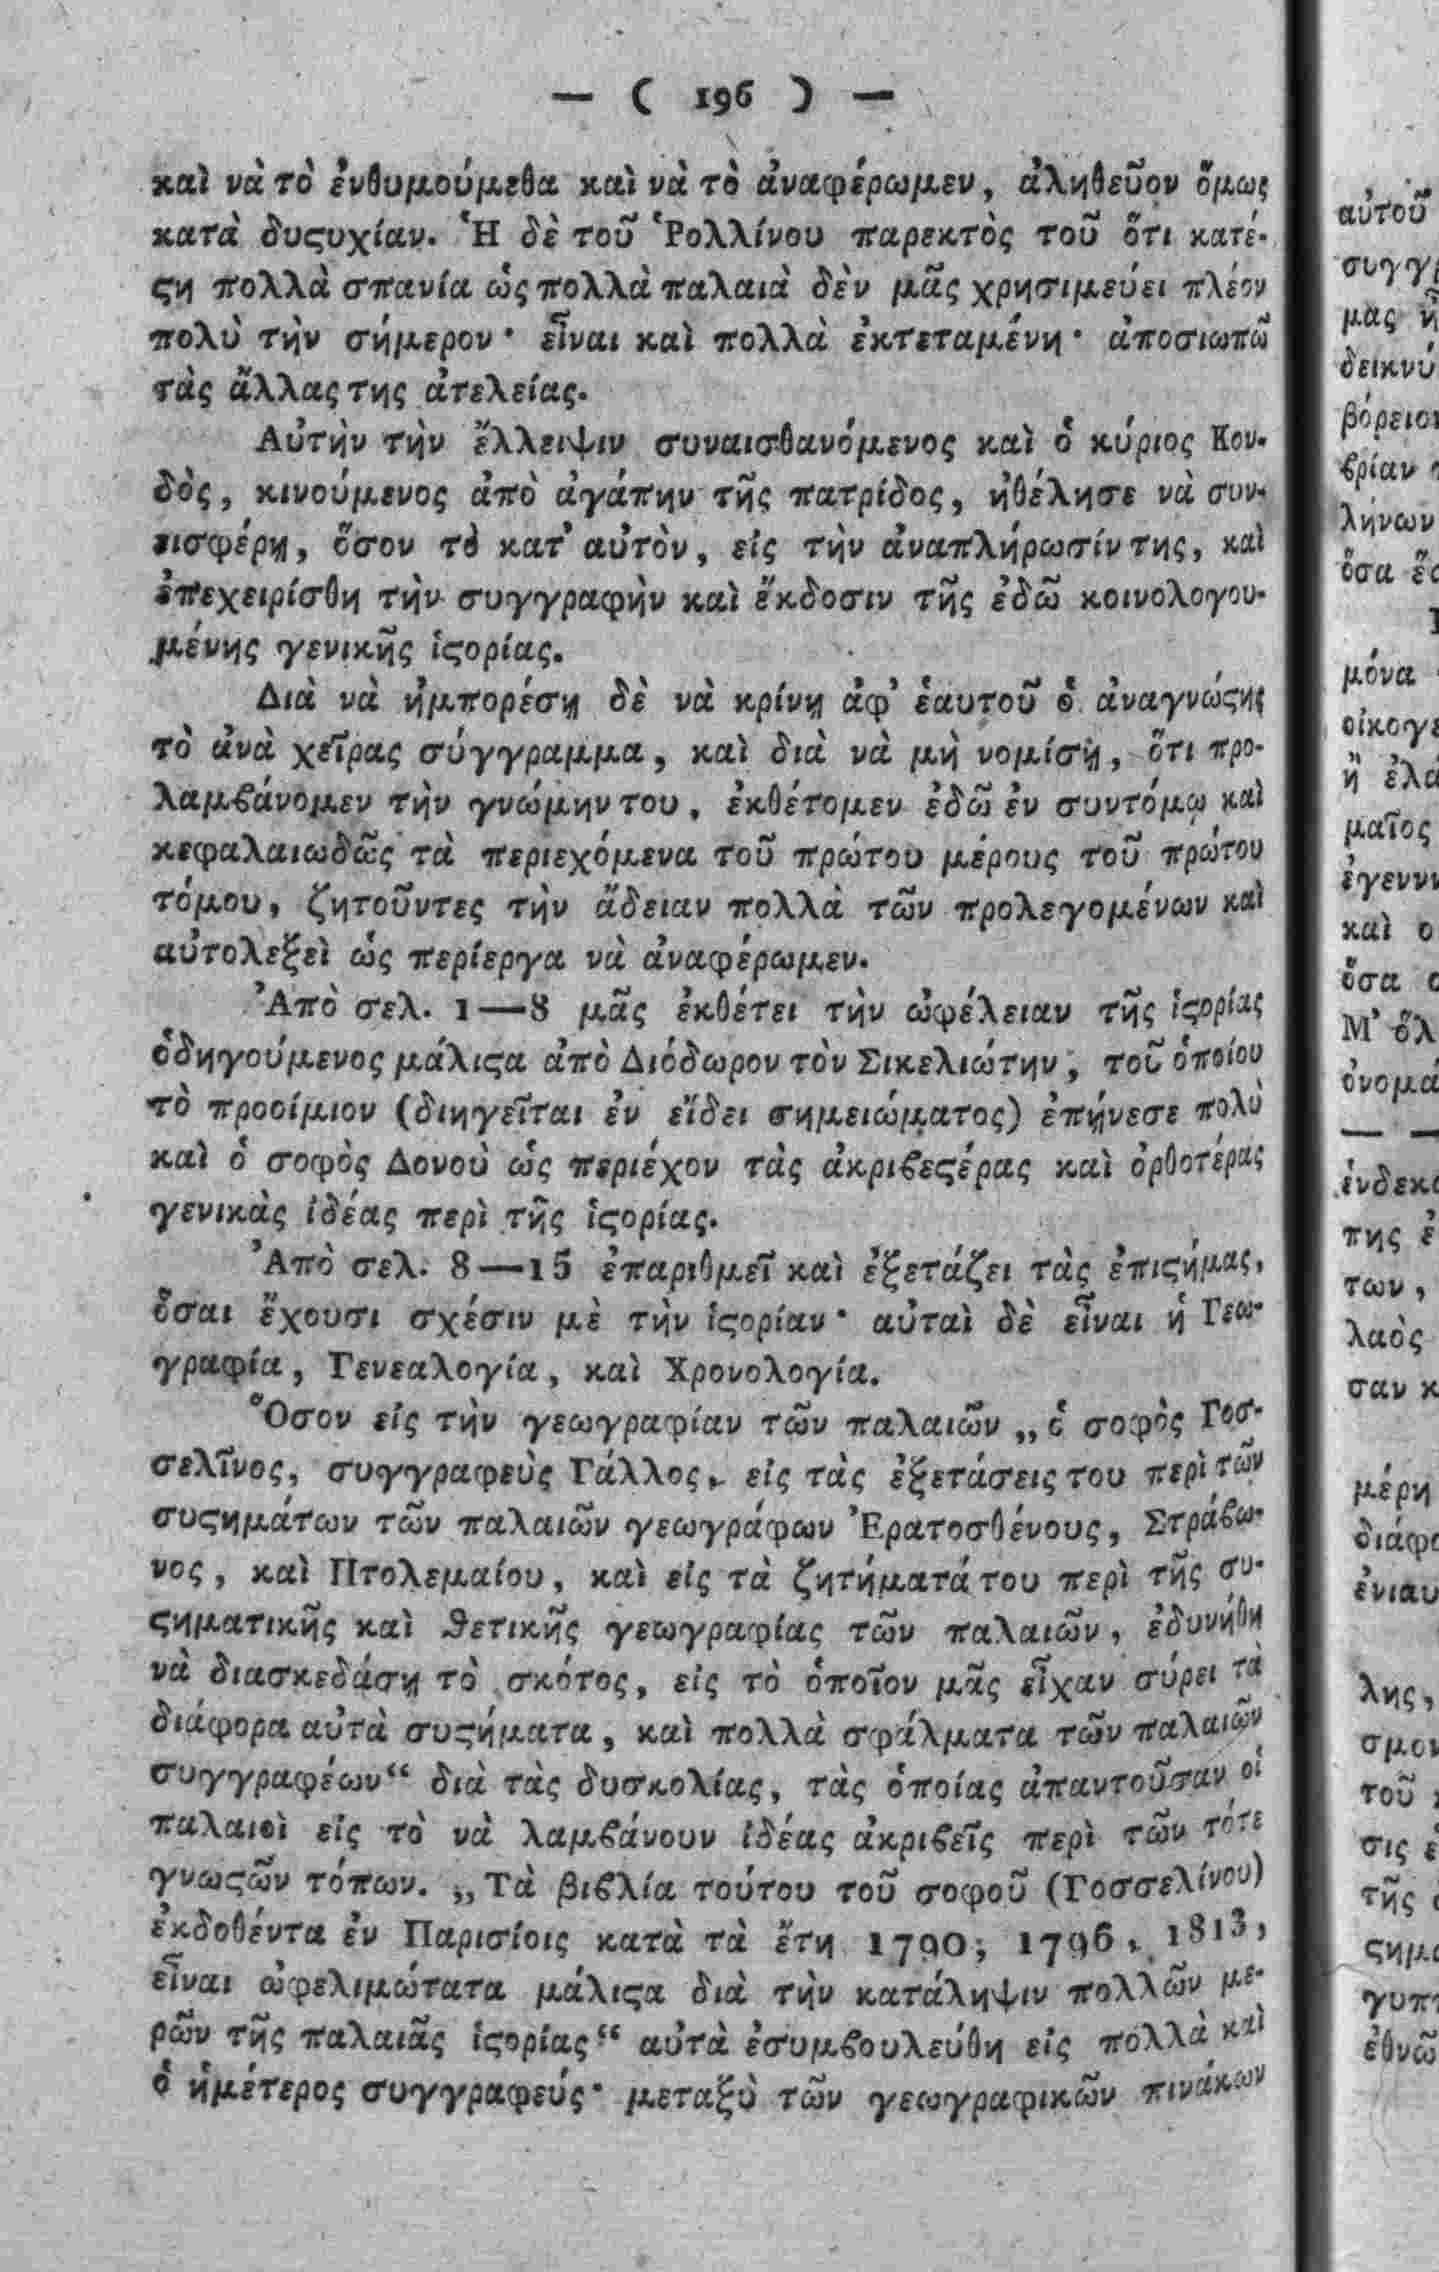 — ( 196 ) —
καὶ νὰ τὸ ἐνθυμούμεθα καὶ νὰ τὸ ἀναφέρωμεν, ἀληθεῦον ὅμως
κατὰ δυςυχίαν. Ἡ δὲ τοῦ Ῥολλίνου παρεκτὸς τοῦ ὅτι κατέ-
ςη πολλὰ σπανία ὡς πολλὰ παλαιὰ δὲν μᾶς χρησιμεύει πλέον
πολὺ τὴν σήμερον· εἶναι καὶ πολλὰ ἐκτεταμένη· ἀποσιωπῶ
τὰς ἄλλας της ἀτελείας.
Αὐτὴν τὴν ἔλλειψιν συναισθανόμενος καὶ ὁ κύριος Κου-
δὸς, κινούμενος ἀπὸ ἀγάπην τῆς πατρίδος, ἠθέλησε νὰ συν-
εισφέρῃ, ὅσον τὸ κατ' αὐτὸν, εἰς τὴν ἀναπλήρωσίν της, καὶ
ἐπεχειρίσθη τὴν συγγραφὴν καὶ ἔκδοσιν τῆς ἐδῶ κοινολογου-
μένης γενικῆς ἱςορίας.
Διὰ νὰ ἠμπορέσῃ δὲ νὰ κρίνῃ ἀφ' ἑαυτοῦ ὁ ἀναγνώςης
τὸ ἀνὰ χεῖρας σύγγραμμα, καὶ διὰ νὰ μὴ νομίσῃ, ὅτι προ-
λαμϐάνομεν τὴν γνώμην του, ἐκθέτομεν ἐδῶ ἐν συντόμῳ καὶ
κεφαλαιωδῶς τὰ περιεχόμενα τοῦ πρώτου μέρους τοῦ πρώτου
τόμου, ζητοῦντες τὴν ἄδειαν πολλὰ τῶν προλεγομένων καὶ
αὐτολεξεὶ ὡς περίεργα νὰ ἀναφέρωμεν.
Ἀπὸ σελ. 1—8 μᾶς ἐκθέτει τὴν ὠφέλειαν τῆς ἱςορίας
ὁδηγούμενος μάλιςα ἀπὸ Διόδωρον τὸν Σικελιώτην, τοῦ ὁποίου
τὸ προοίμιον (διηγεῖται ἐν εἴδει σημειώματος) ἐπῄνεσε πολὺ
καὶ ὁ σοφὸς Δονοὺ ὡς περιέχον τὰς ἀκριϐεςέρας καὶ ὀρθοτέρας
γενικὰς ἰδέας περὶ τῆς ἱςορίας.
Ἀπὸ σελ. 8—15 ἐπαριθμεῖ καὶ ἐξετάζει τὰς ἐπιςήμας,
ὅσαι ἔχουσι σχέσιν μὲ τὴν ἱςορίαν· αὐταὶ δὲ εἶναι ἡ Γεω-
γραφία, Γενεαλογία, καὶ Χρονολογία.
Ὅσον εἰς τὴν γεωγραφίαν τῶν παλαιῶν „ὁ σοφὸς Γοσ-
σελῖνος, συγγραφεὺς Γάλλος, εἰς τὰς ἐξετάσεις του περὶ τῶν
συςημάτων τῶν παλαιῶν γεωγράφων Ἐρατοσθένους, Στράϐω-
νος, καὶ Πτολεμαίου, καὶ εἰς τὰ ζητήματά του περὶ τῆς συ-
ςηματικῆς καὶ ϑετικῆς γεωγραφίας τῶν παλαιῶν, ἐδυνήθη
νὰ διασκεδάσῃ τὸ σκότος, εἰς τὸ ὁποῖον μᾶς εἶχαν σύρει τὰ
διάφορα αὐτὰ συςήματα, καὶ πολλὰ σφάλματα τῶν παλαιῶν
συγγραφέων“ διὰ τὰς δυσκολίας, τὰς ὁποίας ἀπαντοῦσαν οἱ
παλαιοὶ εἰς τὸ νὰ λαμϐάνουν ἰδέας ἀκριϐεῖς περὶ τῶν τότε
γνωςῶν τόπων. „Τὰ βιϐλία τούτου τοῦ σοφοῦ (Γοσσελίνου)
ἐκδοθέντα ἐν Παρισίοις κατὰ τὰ ἔτη 1790, 1796, 1813,
εἶναι ὠφελιμώτατα μάλιςα διὰ τὴν κατάληψιν πολλῶν με-
ρῶν τῆς παλαιᾶς ἱςορίας“ αὐτὰ ἐσυμϐουλεύθη εἰς πολλὰ καὶ
ὁ ἡμέτερος συγγραφεύς· μεταξὺ τῶν γεωγραφικῶν πινάκων